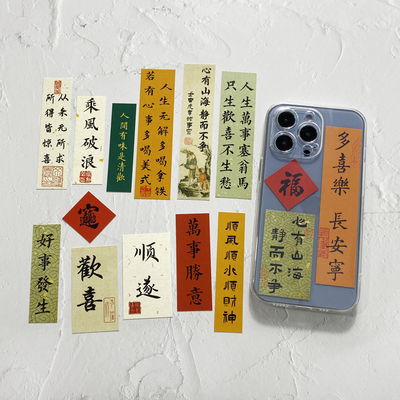 从来无所求
所得皆惊喜
乘風破浪
人間有味是清歡
人生无解多喝拿铁
若有心事多喝美式
心有山海静而不争
人生萬事塞翁馬
只生歡喜不生愁
好事發生
歡喜
顺遂
萬事勝意
顺风顺水顺财神
福
多喜樂 長安寧
心有山海
静而不争